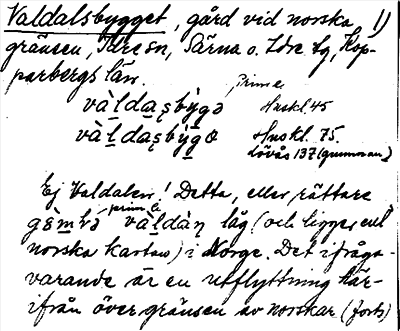 Valdalsbygget, gård vid norska 1)
gränsen, Idre sn, Särna o. Idre tg, Kop-
parbergs län.
primc
và̀ldasby̍gə Huskl. 45
và̀ldasby̍gɵ Huskl. 75.
Lövås 137 (gumman)
Ej Valdalen! Detta, eller rättare
primc
vàldàn låg (och ligger enl
norska kartan) i Norge. Det ifråga-
varande är en utflyttning här-
ifrån över gränsen av norskar (forts)